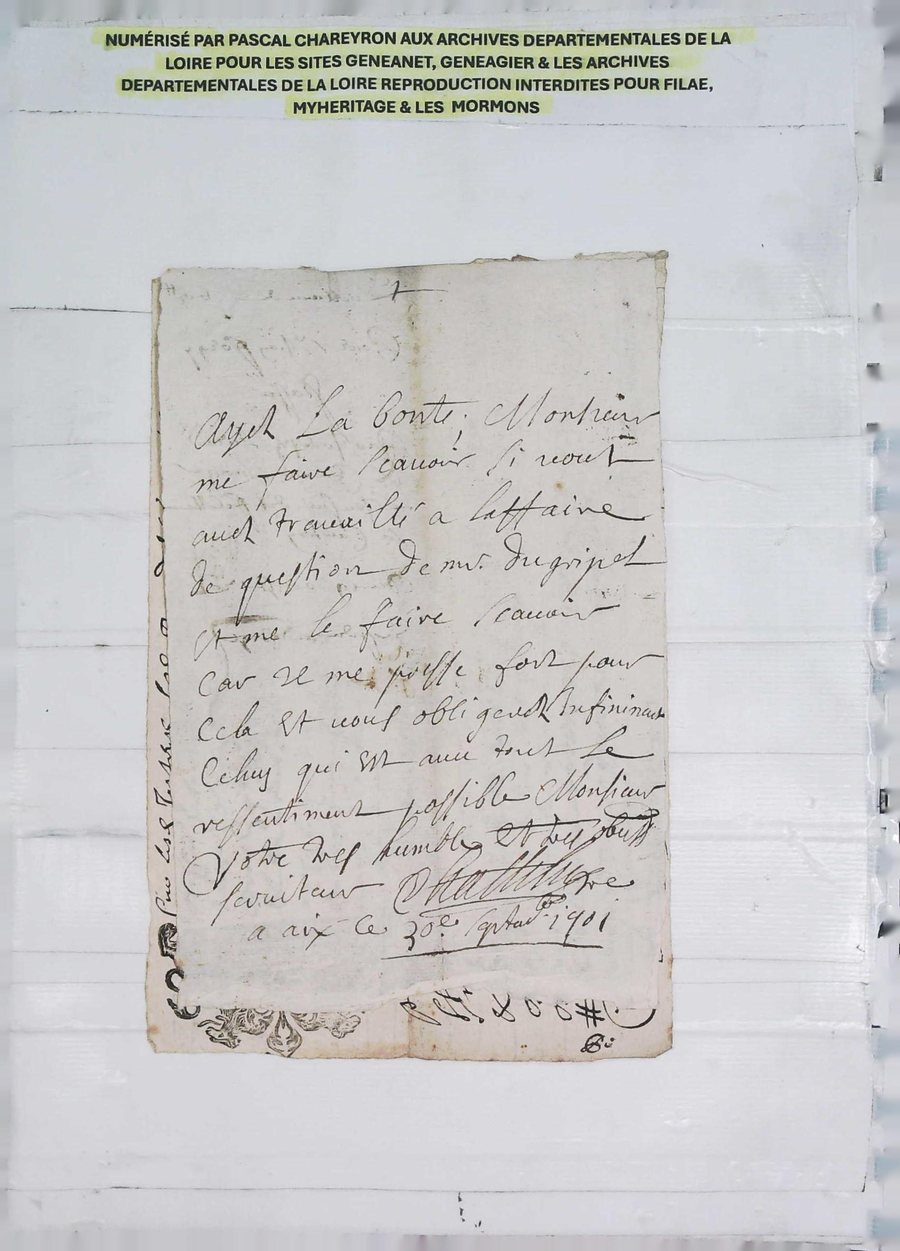 NUMÉRISÉ PAR PASCAL CHAREYRON AUX ARCHIVES DEPARTEMENTALES DE LA
LOIRE POUR LES SITES GENEANET, GENEAGIER & LES ARCHIVES
DEPARTEMENTALES DE LA LOIRE REPRODUCTION INTERDITES POUR FILAE,
MYHERITAGE & LES MORMONS
Ayez La bonté, Monsieur
me faire scavoir si vous
avez travaillé a laffaire
de question de mr. dugripel
et me le faire scavoir
Car il me presse fort pour
Cela et vous obligerez Infiniment
Celuy qui est avec tout le
ressentiment possible Monsieur
Votre tres humble et tres obeiss
serviteur
a aix ce 30e 1701